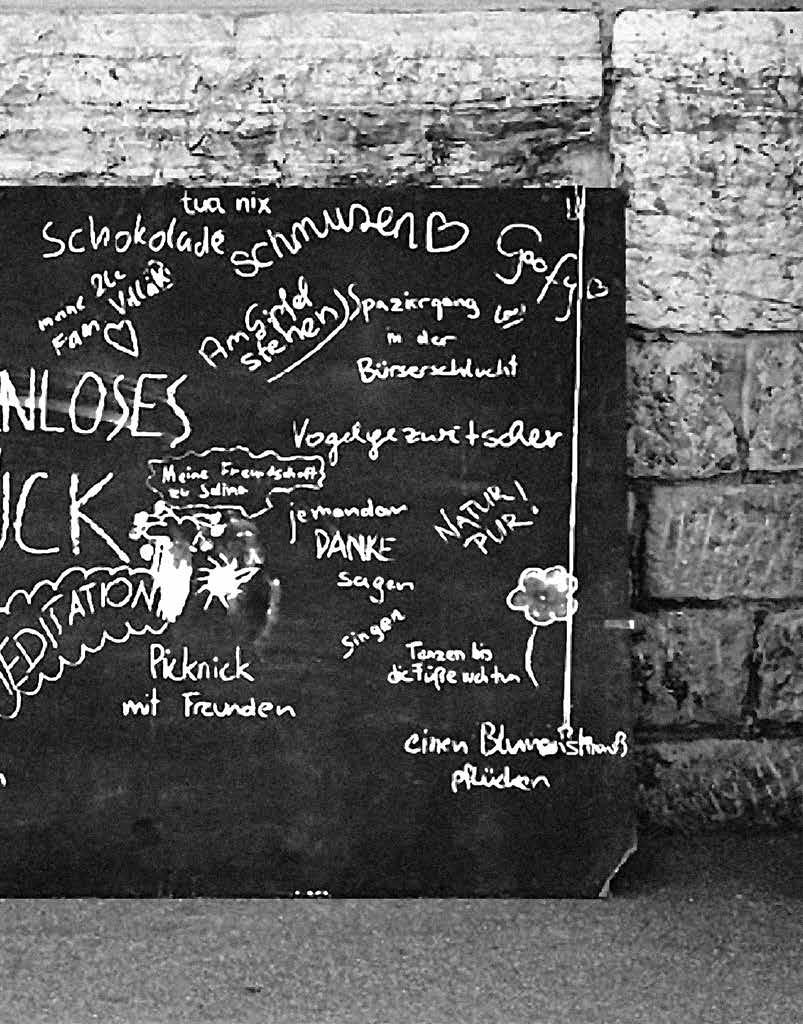 tua nix
Schokolade
schmusen
Goofy
Fam
Am Gipfel
stehen
Spaziergang
in der
Bürserschlucht
NLOSES
Vogelgezwitscher
Meine Freundschaft
zu Selina
CK
jemandem
DANKE
sagen
NATUR!
PUR!
EDITATION
singen
Picknick
mit Freunden
Tanzen bis
die Füße
einen Blumenstrauß
pflücken